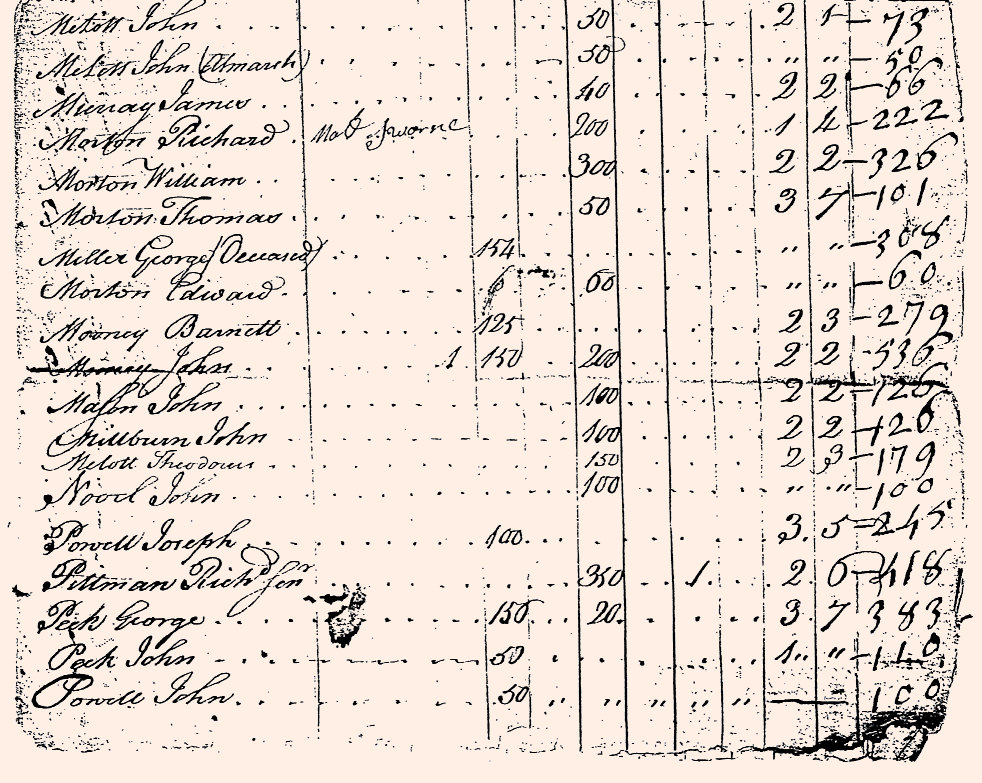 Melott John 50 2 1 — 73
Melott John (Almarsh) 50 " " — 50
Murray James 40 2 2 — 66
Morton Richard 200 1 4 — 222
Morton William 300 2 2 — 326
Morton Thomas 50 3 7 — 101
Miller George (Deceased) 154 " " — 308
Morton Edward 60 " " — 60
Mooney Barnett 125 2 3 — 279
John 1 150 200 2 2 - 536
Mason John 100 2 2 — 126
Millburn John 100 2 2 — 126
Melott Theodorus 150 2 3 — 179
Nooel John 100 " " — 100
Powell Joseph 100 3 5 = 245
Pittman Richd Senr 350 1 2 6 — 418
Peck George 150 20 3 7 383
Peck John 50 1 " — 110
Powell John 50 " " " " " — 100